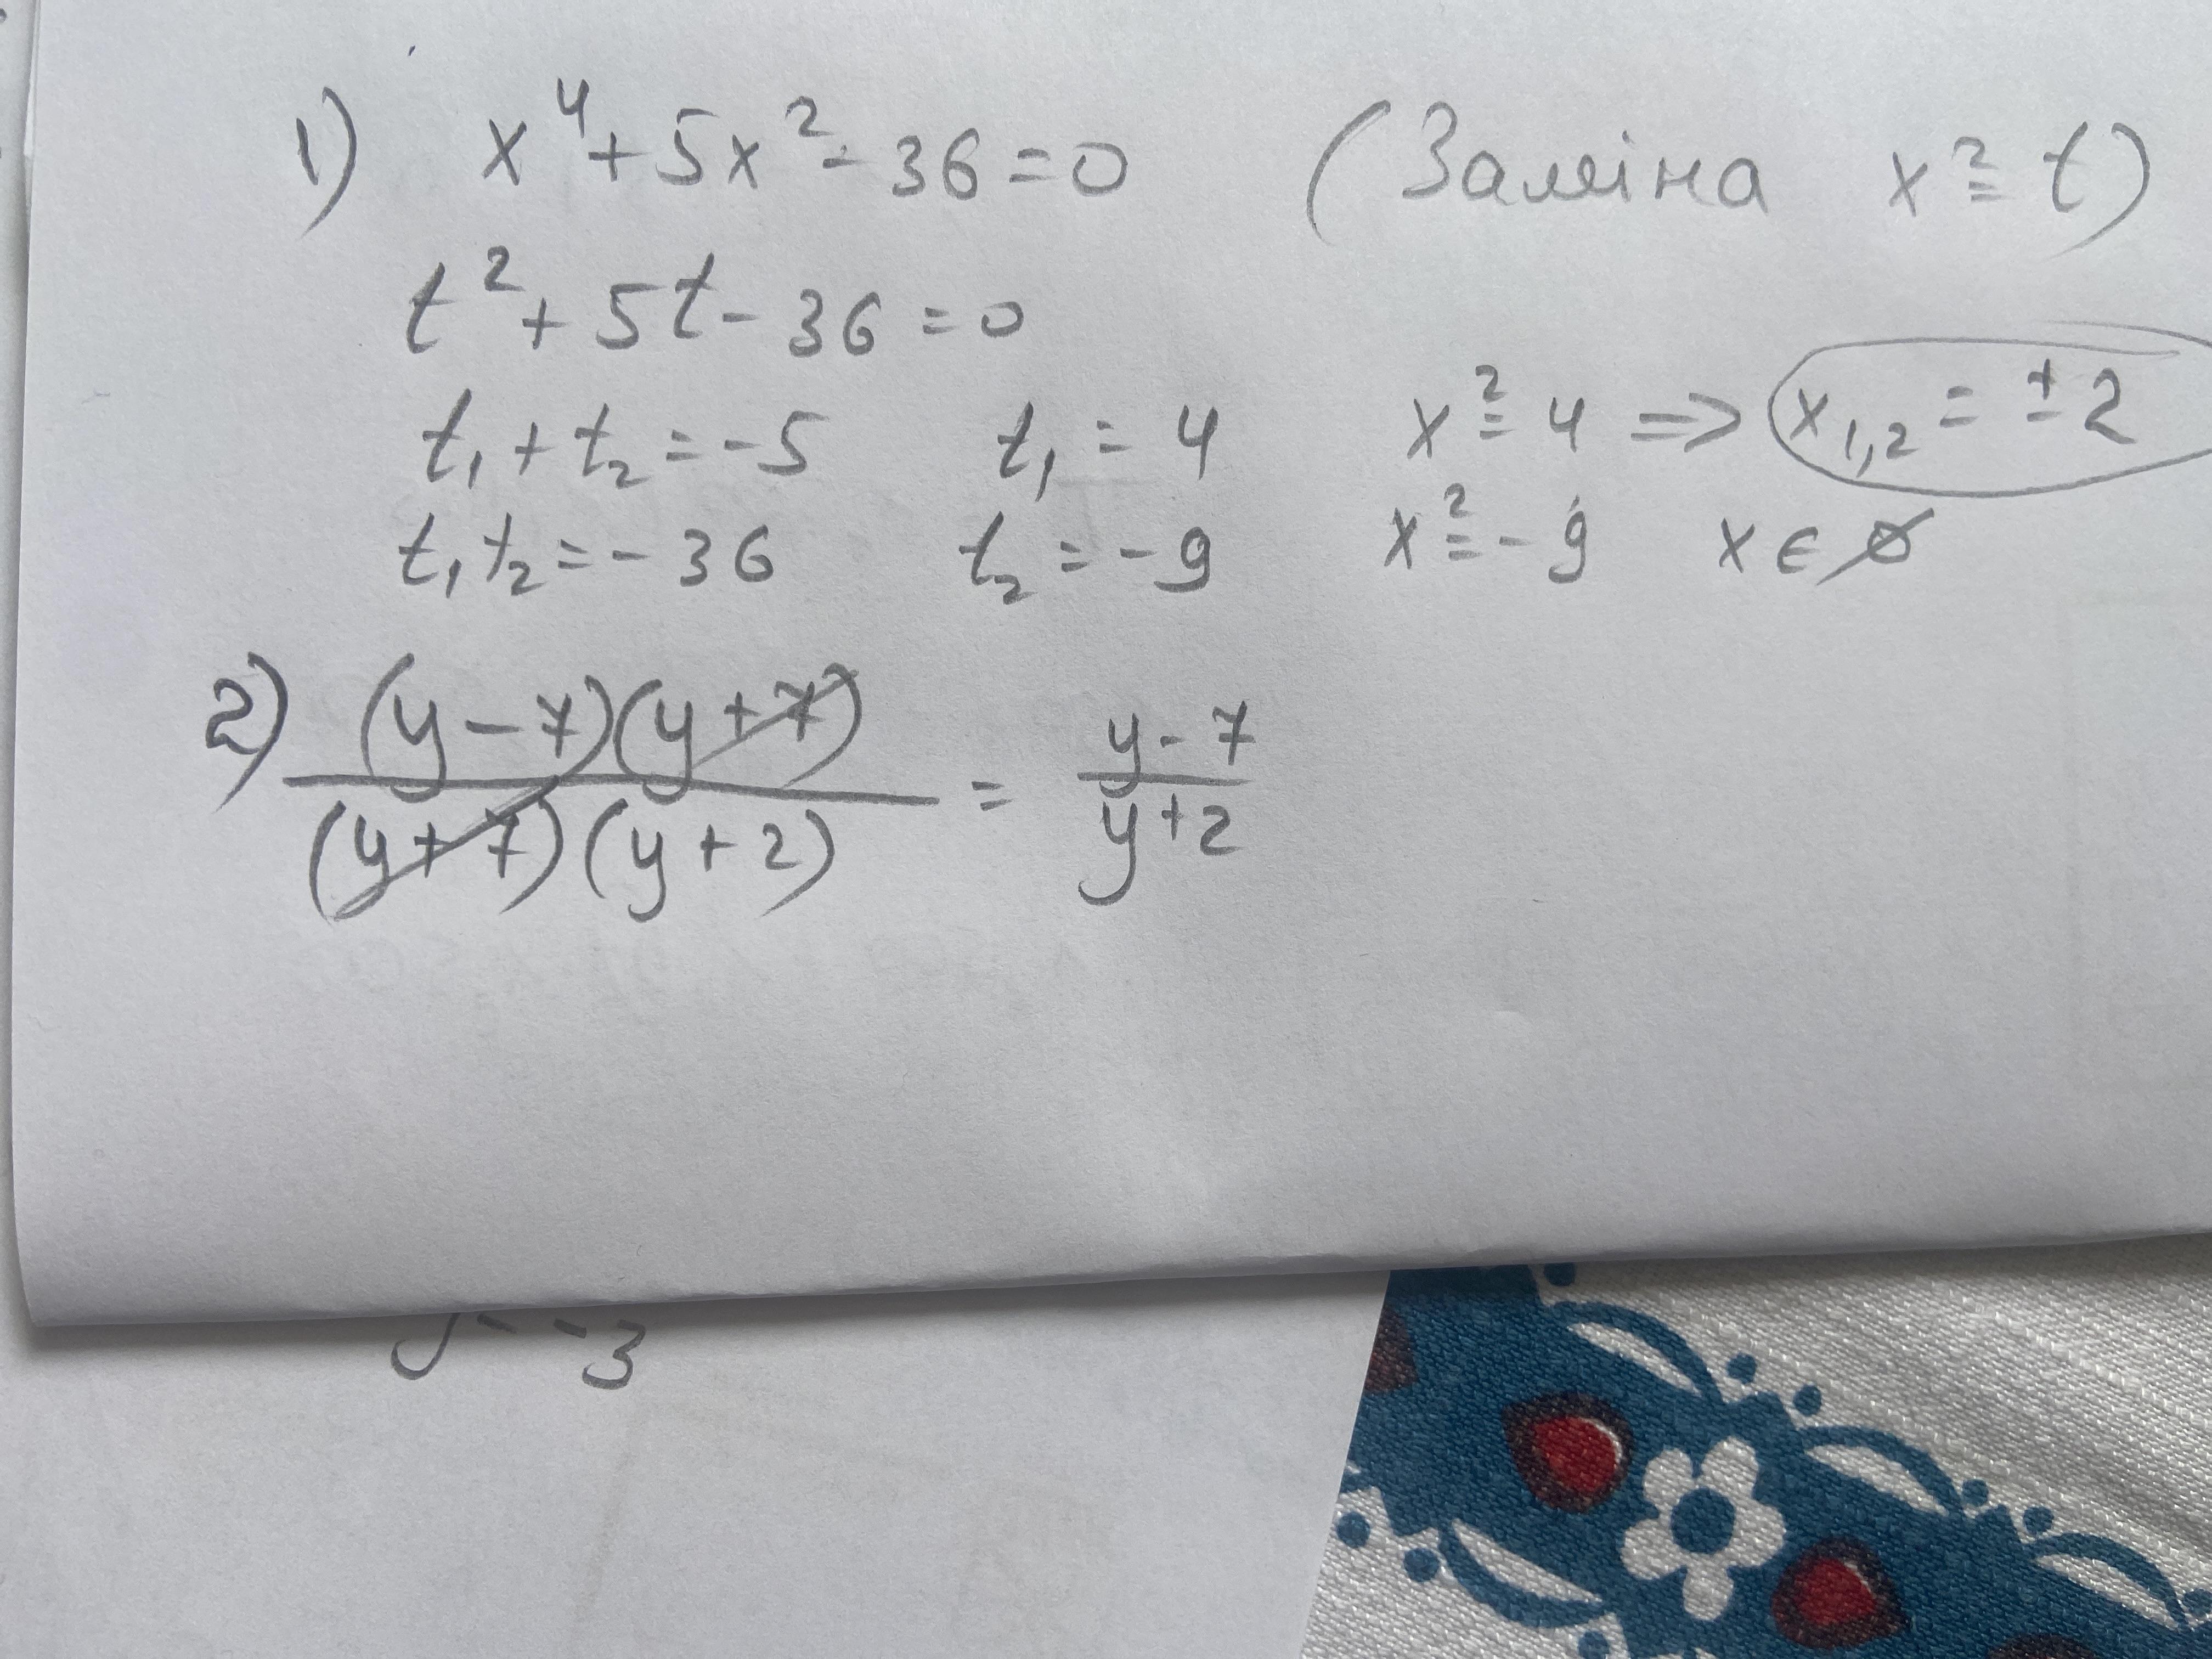 1) x⁴ + 5x² - 36 = 0 (Заміна x² = t)
t² + 5t - 36 = 0
t₁ + t₂ = -5 t₁ = 4 x² = 4 => x₁,₂ = ±2
t₁ t₂ = -36 t₂ = -9 x² = -9 x ∈ ∅
2) (y - 7)(y + 7) / (y + 7)(y + 2) = y - 7 / y + 2
-3